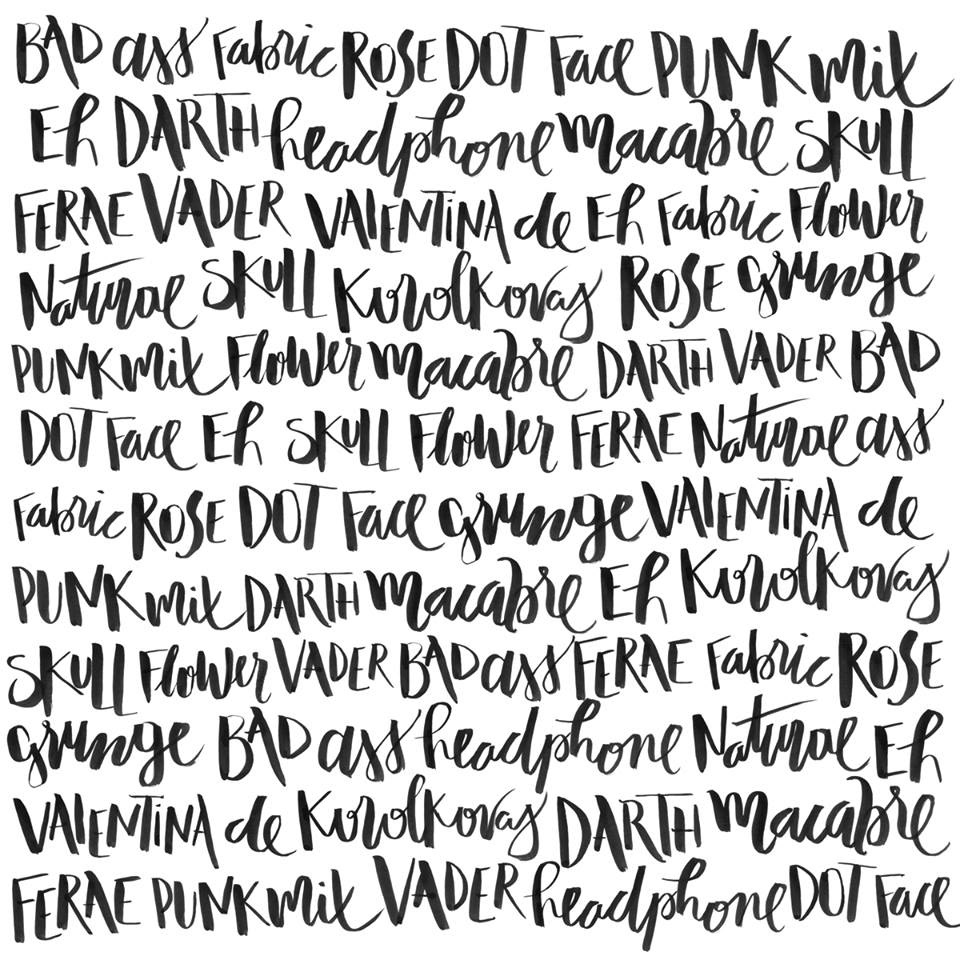 BAD ass Fabric ROSE DOT Face PUNK mix
Eh DARTH headphone macabre SKULL
FERAE VADER VALENTINA de Eh Fabric Flower
Naturae SKULL Korolkovas ROSE grunge
PUNK mix Flower macabre DARTH VADER BAD
DOT Face Eh SKULL Flower FERAE Naturae ass
Fabric ROSE DOT Face grunge VALENTINA de
PUNK mix DARTH macabre Eh Korolkovas
SKULL Flower VADER BAD ass FERAE Fabric ROSE
grunge BAD ass headphone Naturae Eh
VALENTINA de Korolkovas DARTH macabre
FERAE PUNK mix VADER headphone DOT Face